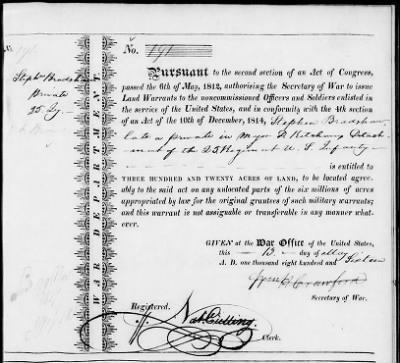 No. 191
Stephen Bradshaw
Private
25 Ig.
WAR DEPARTMENT
Pursuant to the second section of an Act of Congress,
passed the 6th of May, 1812, authorising the Secretary of War to issue
Land Warrants to the noncommissioned Officers and Soldiers enlisted in
the service of the United States, and in conformity with the 4th section
of an Act of the 10th of December, 1814, Stephen Bradshaw
late a private in Major Detach
ment of the 25 Regiment U. S. Infantry
is entitled to
THREE HUNDRED AND TWENTY ACRES OF LAND, to be located agree-
ably to the said act on any unlocated parts of the six millions of acres
appropriated by law for the original grantees of such military warrants;
and this warrant is not assignable or transferable in any manner what-
ever.
GIVEN at the War Office of the United States,
this 13 day of May
A. D. one thousand eight hundred and Sixteen
Crawford
Secretary of War.
Registered.
Nat Cutting
Clerk.